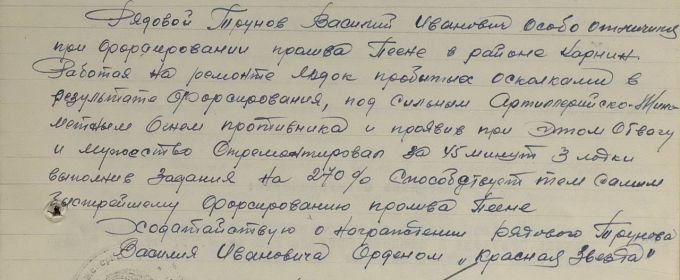 Рядовой Трунов Василий Иванович особо отличился
при форсировании пролива Пеене в районе Карнин.
Работая на ремонте лодок пробитых осколками в
результате форсирования, под сильным Артиллерийско-Мин-
метным огнем противника и проявив при этом Отвагу
и мужество Отремонтировал за 45 минут 3 лодки
выполнив задания на 270% Способствует тем самым
быстрейшему форсированию пролива Пеене
Ходатайствую о награждении рядового Трунова
Василия Ивановича Орденом „Красная Звезда"